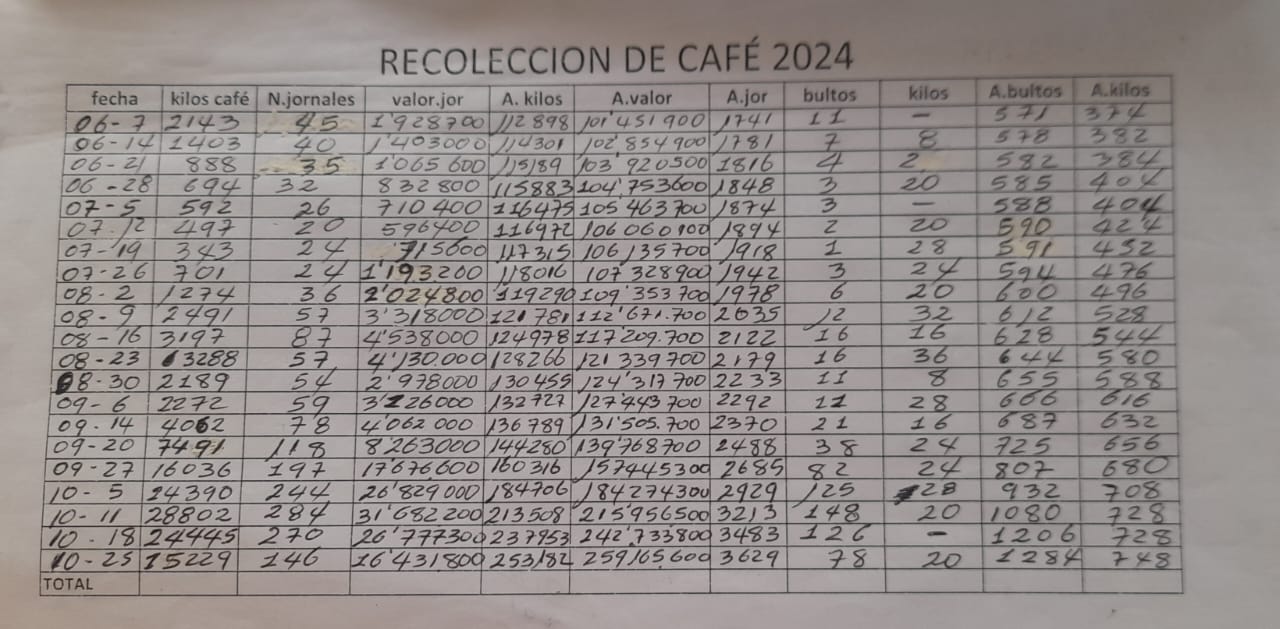 RECOLECCION DE CAFÉ 2024
fecha kilos café N.jornales valor.jor A. kilos A.valor A.jor bultos kilos A.bultos A.kilos
06-7 2143 45 1'928700 112898 101'451900 1741 11 - 571 374
06-14 1403 40 1'403000 114301 102'854900 1781 7 8 578 382
06-21 888 35 1'065600 115189 103'920500 1816 4 2 582 384
06-28 694 32 832800 115883 104'753600 1848 3 20 585 404
07-5 592 26 710400 116475 105'463700 1874 3 - 588 404
07-12 497 20 596400 116972 106060100 1894 2 20 590 424
07-19 343 24 715600 117315 106,135700 1918 1 28 591 452
07-26 701 24 1'193200 118016 107328900 1942 3 24 594 476
08-2 1274 36 2'024800 119290 109'353700 1978 6 20 600 496
08-9 2491 57 3'318000 121781 112'671.700 2035 12 32 612 528
08-16 3197 87 4'538000 124978 117'209.700 2122 16 16 628 544
08-23 3288 57 4'130.000 128266 121339700 2179 16 36 644 580
08-30 2189 54 2'978000 130455 124'317700 2233 11 8 655 588
09-6 2272 59 3'126000 132727 127'443700 2292 11 28 666 616
09-14 4062 78 4'062000 136789 131'505.700 2370 21 16 687 632
09-20 7491 118 8'263000 144280 139'768700 2488 38 24 725 656
09-27 16036 197 17'676600 160316 157445300 2685 82 24 807 680
10-5 24390 244 26'829000 184706 184'274300 2929 125 28 932 708
10-11 28802 284 31'682200 213508 215'956500 3213 148 20 1080 728
10-18 24445 270 26'777300 237953 242'733800 3483 126 - 1206 728
10-25 15229 146 16'431800 253182 259165.600 3629 78 20 1284 748
TOTAL